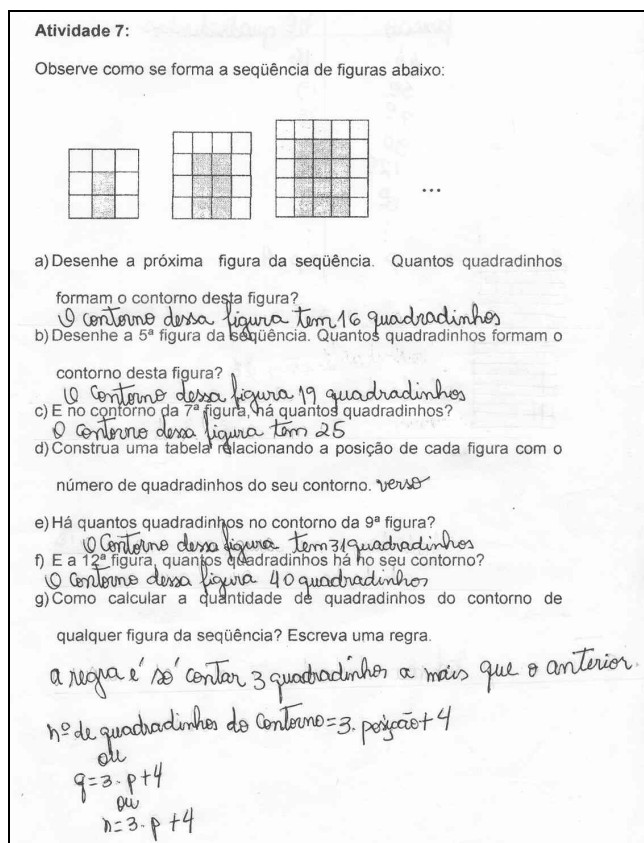 Atividade 7:
Observe como se forma a seqüência de figuras abaixo:
...
a) Desenhe a próxima figura da seqüência. Quantos quadradinhos
formam o contorno desta figura?
O contorno dessa figura tem 16 quadradinhos
b) Desenhe a 5ª figura da seqüência. Quantos quadradinhos formam o
contorno desta figura?
O contorno dessa figura 19 quadradinhos
c) E no contorno da 7ª figura, há quantos quadradinhos?
O contorno dessa figura tem 25
d) Construa uma tabela relacionando a posição de cada figura com o
número de quadradinhos do seu contorno. verso
e) Há quantos quadradinhos no contorno da 9ª figura?
O Contorno dessa figura tem 31 quadradinhos
f) E a 12ª figura, quantos quadradinhos há no seu contorno?
O contorno dessa figura 40 quadradinhos
g) Como calcular a quantidade de quadradinhos do contorno de
qualquer figura da seqüência? Escreva uma regra.
a regra é só contar 3 quadradinhos a mais que o anterior.
nº de quadradinhos do contorno = 3. posição + 4
ou
q = 3. p + 4
ou
n = 3. p + 4